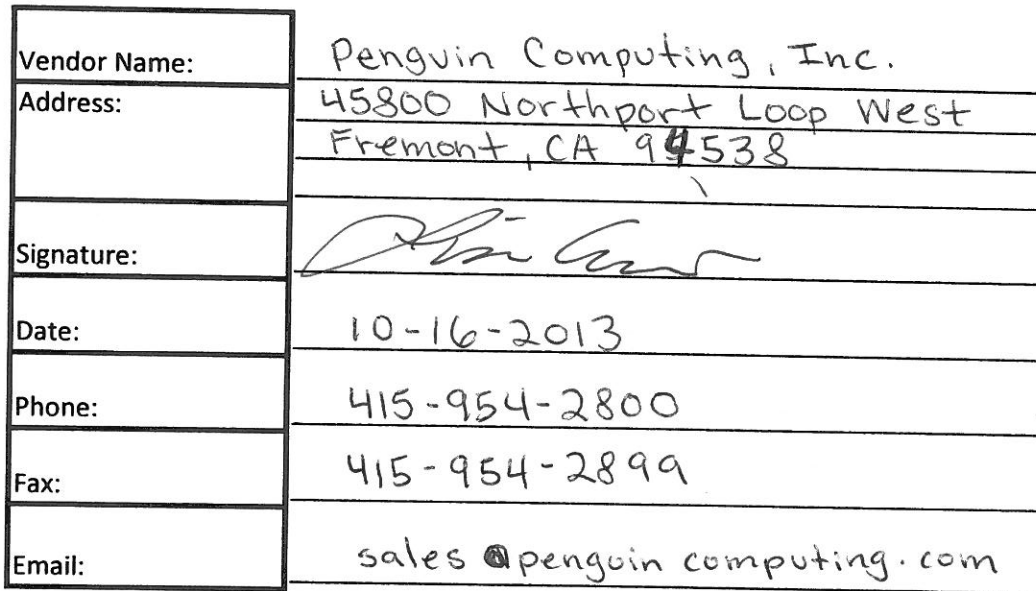 Vendor Name: Penguin Computing, Inc.
Address: 45800 Northport Loop West
Fremont, CA 94538
Signature:
Date: 10-16-2013
Phone: 415-954-2800
Fax: 415-954-2899
Email: sales@penguincomputing.com